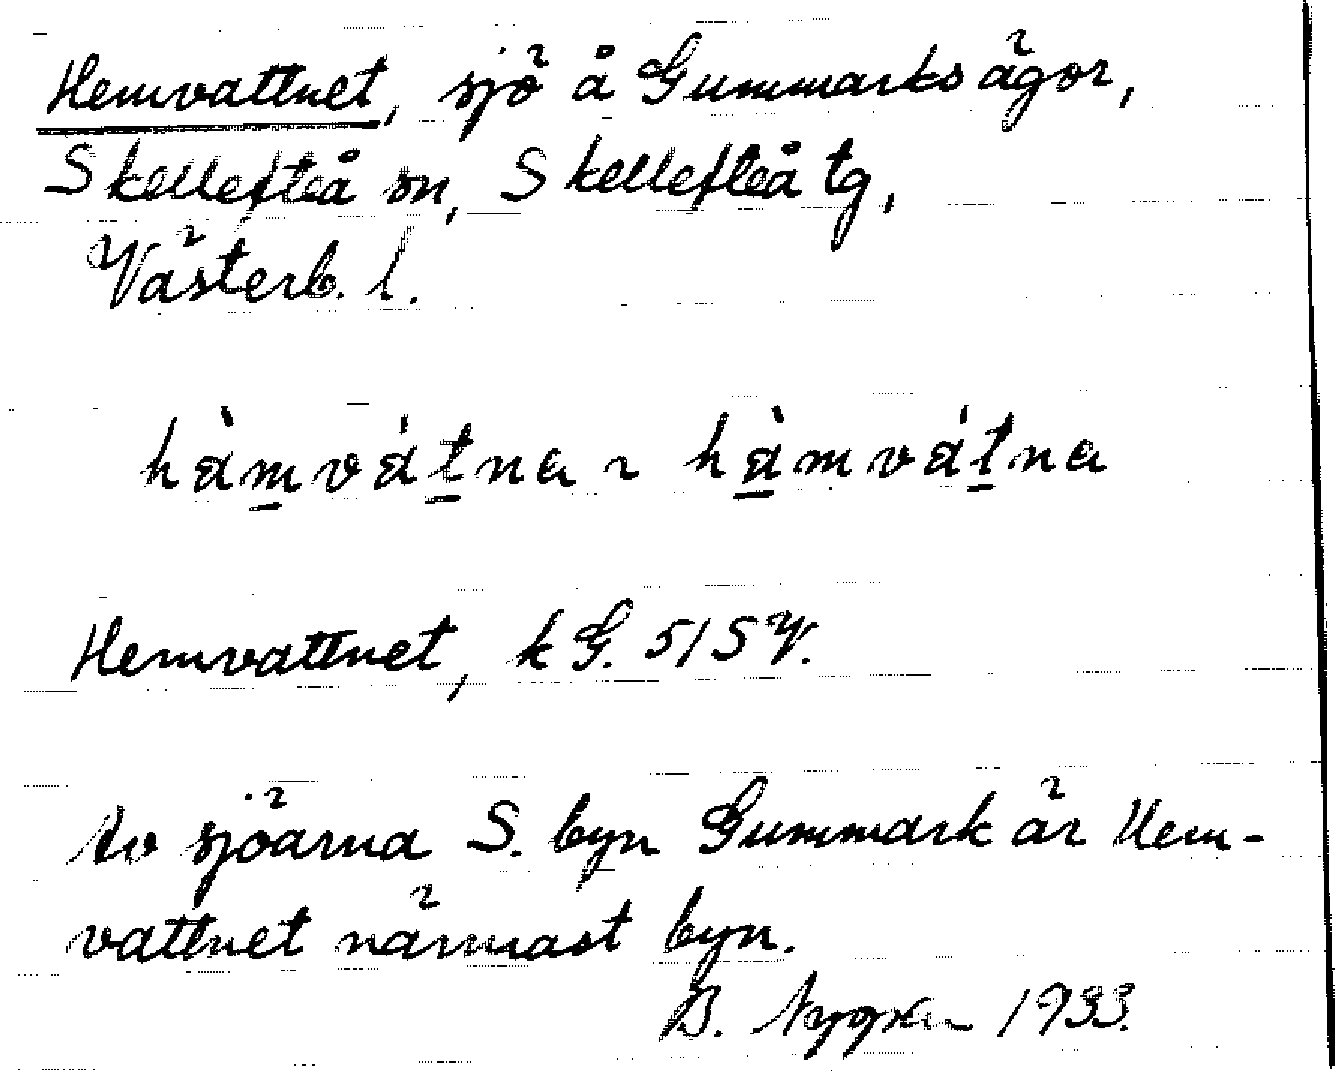 Hemvattnet, sjö å Gummarks ägor,
Skellefteå sn, Skellefteå tg,
Västerb. l.
hàm̠vát̠na ~ hà̠mvát̠na
Hemvattnet, kG. 51SV.
Av sjöarna S. byn Gummark är Hem-
vattnet närmast byn.
B. 1933.